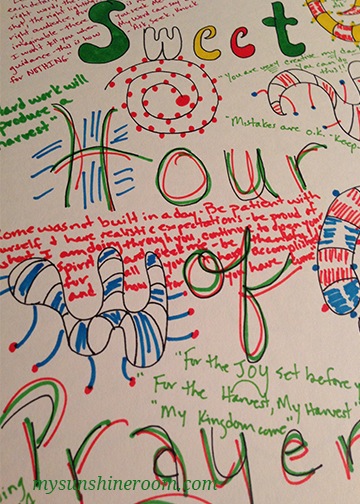 for NOTHING"
Sweet
hard work will
produce a
harvest"
"You are very creative, my da
You can do
this!
"Mistakes are o.k." "Keep
Hour
Rome was not built in a day. Be patient with
urself & have realistic expectations - be proud of
what I am doing through you, continue to deepen your
Spirit and seek me - be thankful
for all you have accomplished
and how far you have come"
of
"For the JOY set before
"For the Harvest, My Harvest
"My Kingdom come
Prayer
mysunshineroom.com